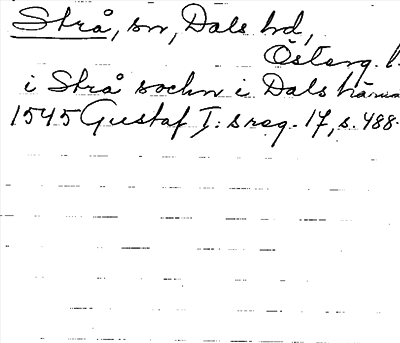 Strå, sn, Dals hd,
Österg. l.
i Strå sochn i Dals härna
1545 Gustaf I: s reg. 17, s. 488.